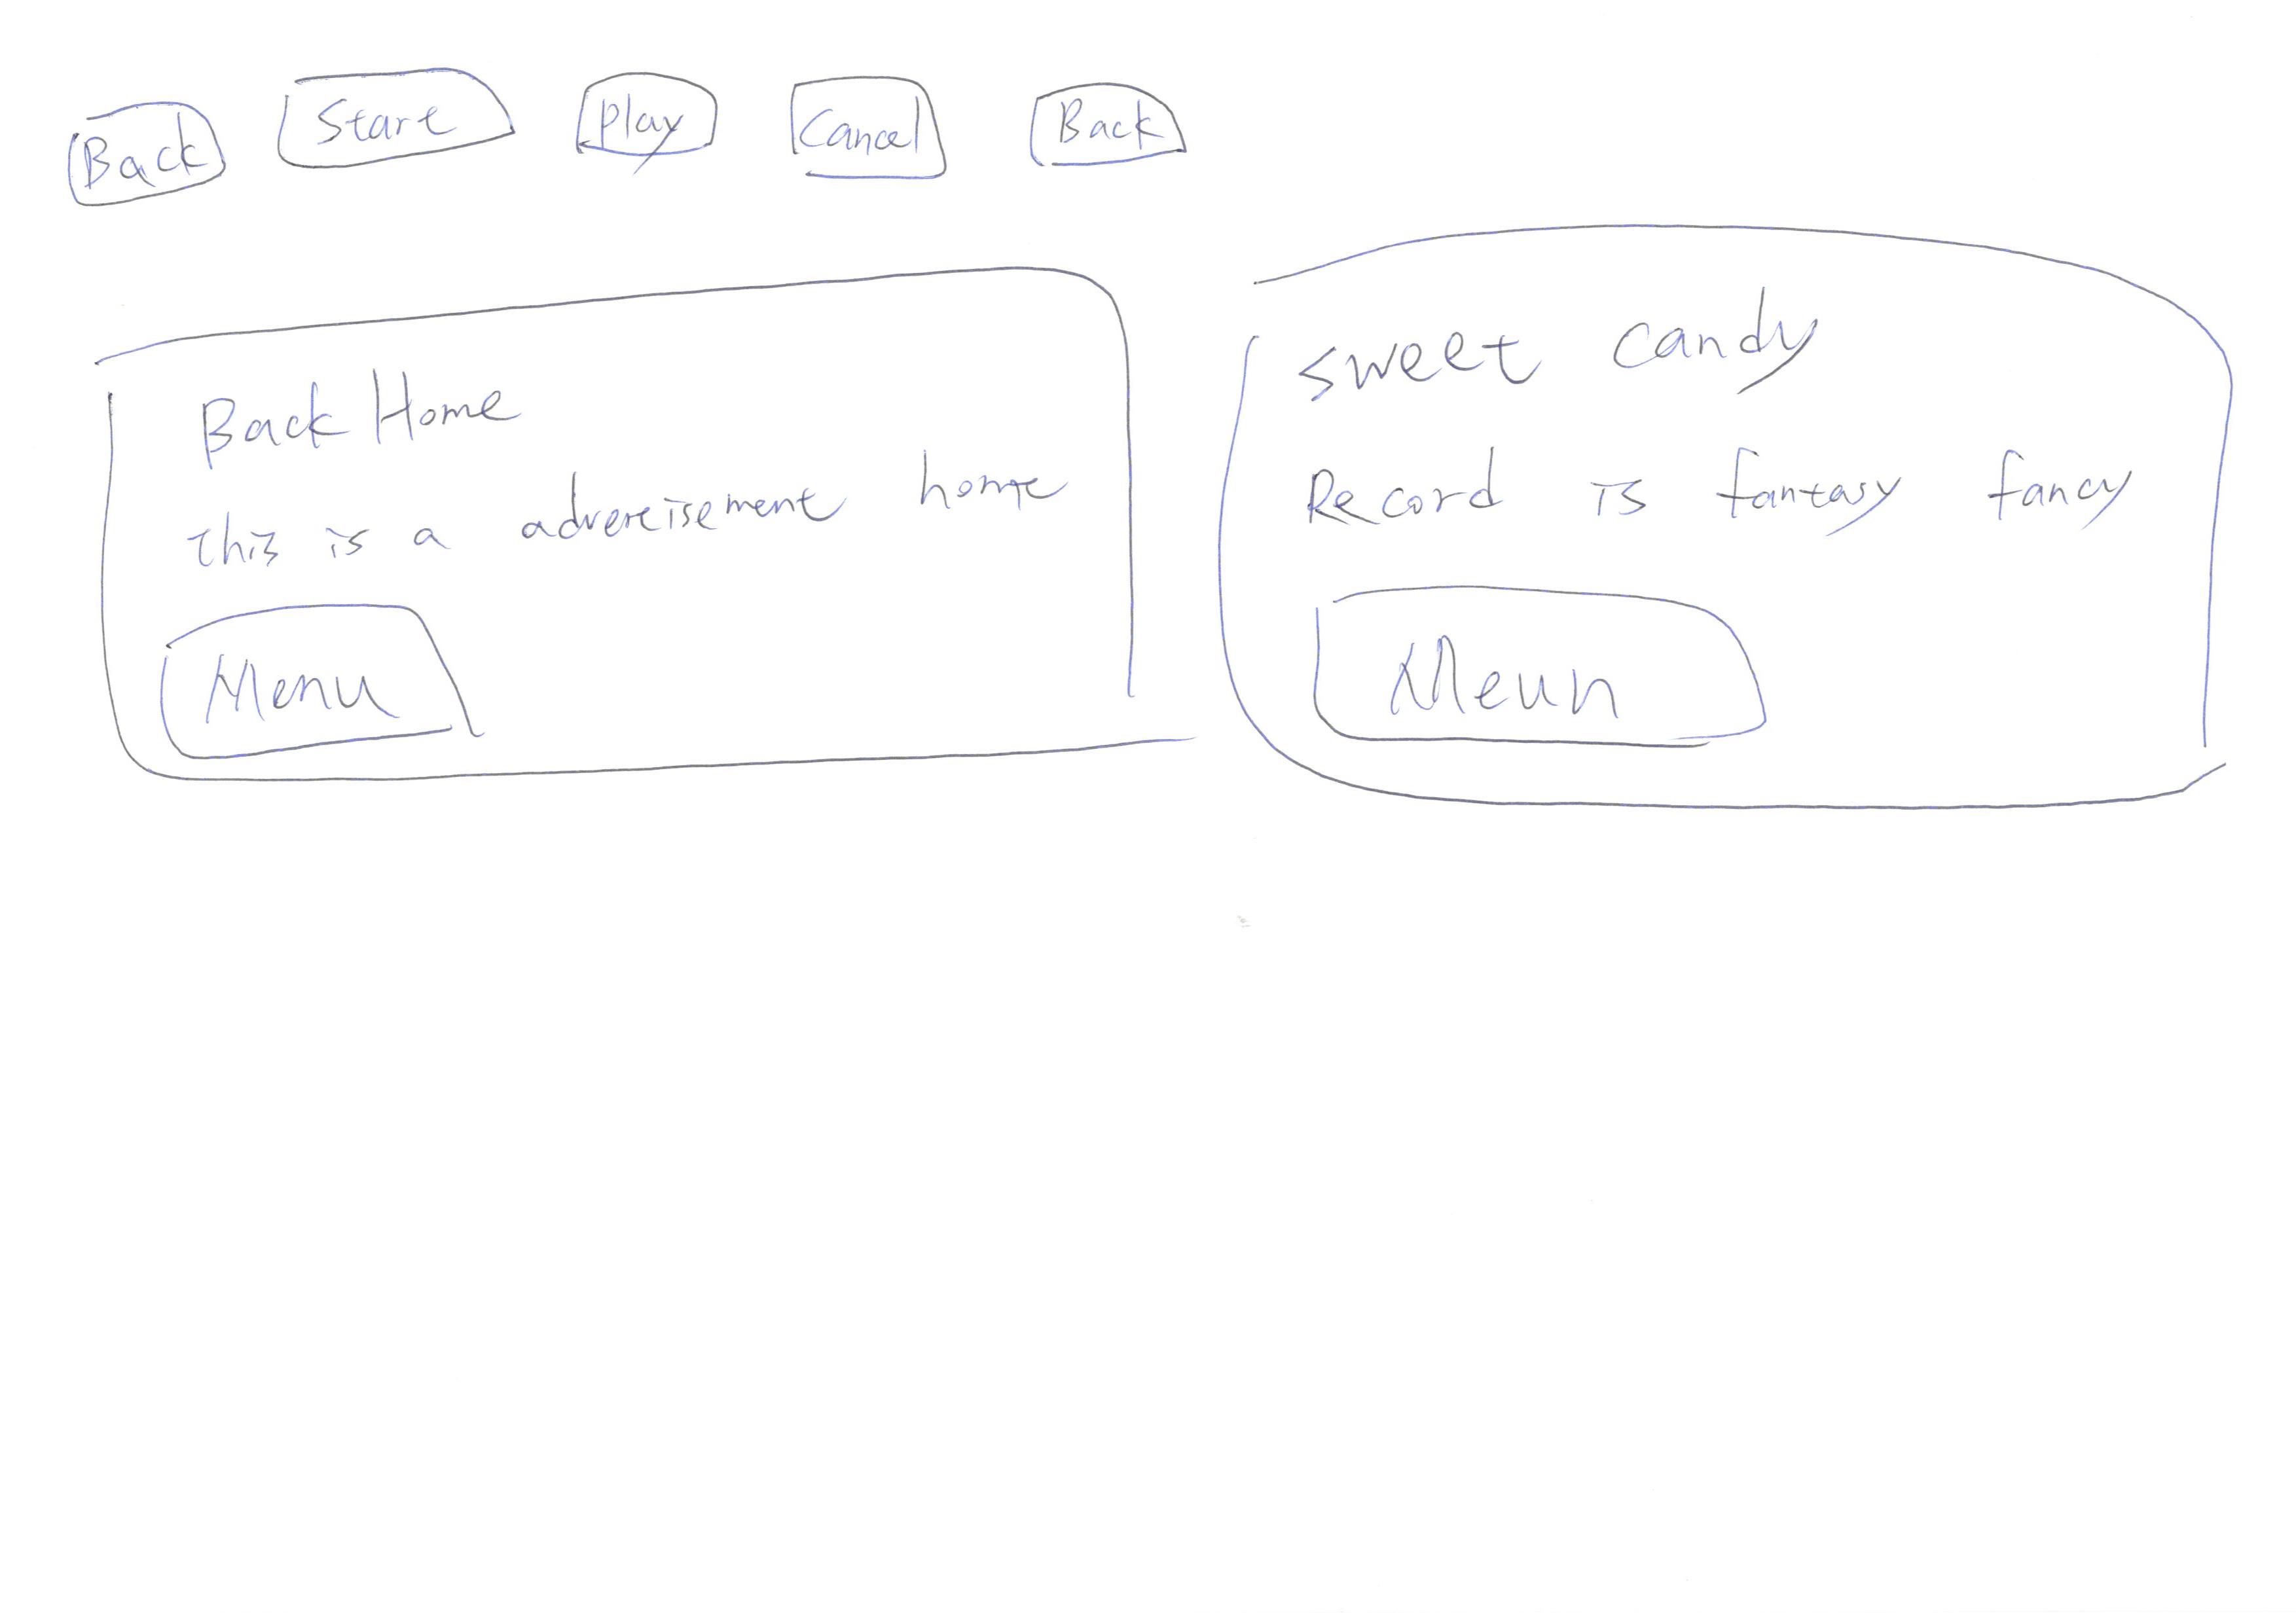 Back Start Play Cancel Back
Back Home
this is a advertisement home
Menu
sweet candy
Record is fantasy fancy
Meun